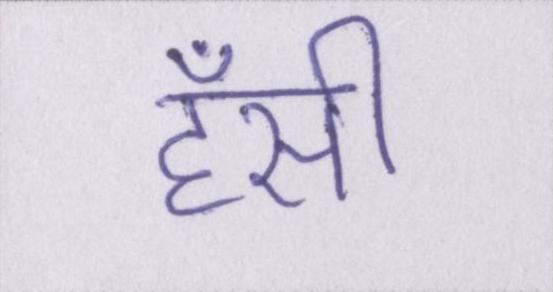 हँसी